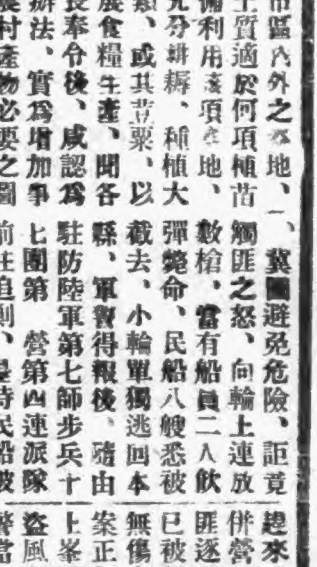 市區內外之地、一
土質適於何項植苗
備利用該項地、
充分耕耨、種植大
類、或其荳粟、以
展食糧生產、聞各
長奉令後、咸認爲
辦法、實爲增加爭
農村產物必要之圖
、冀圖避免危險、詎竟
觸匪之怒、向輪上連放
數槍、當有船員二人飲
彈斃命、民船八艘悉被
截去、小輪單獨逃回本
縣、軍警得報後、隨由
駐防陸軍第七師步兵十
七團第 營第四連派隊
前往追剿、是時民船被
趨來
併營
匪逐
已被
無傷
案正
上峯
盜風
警當